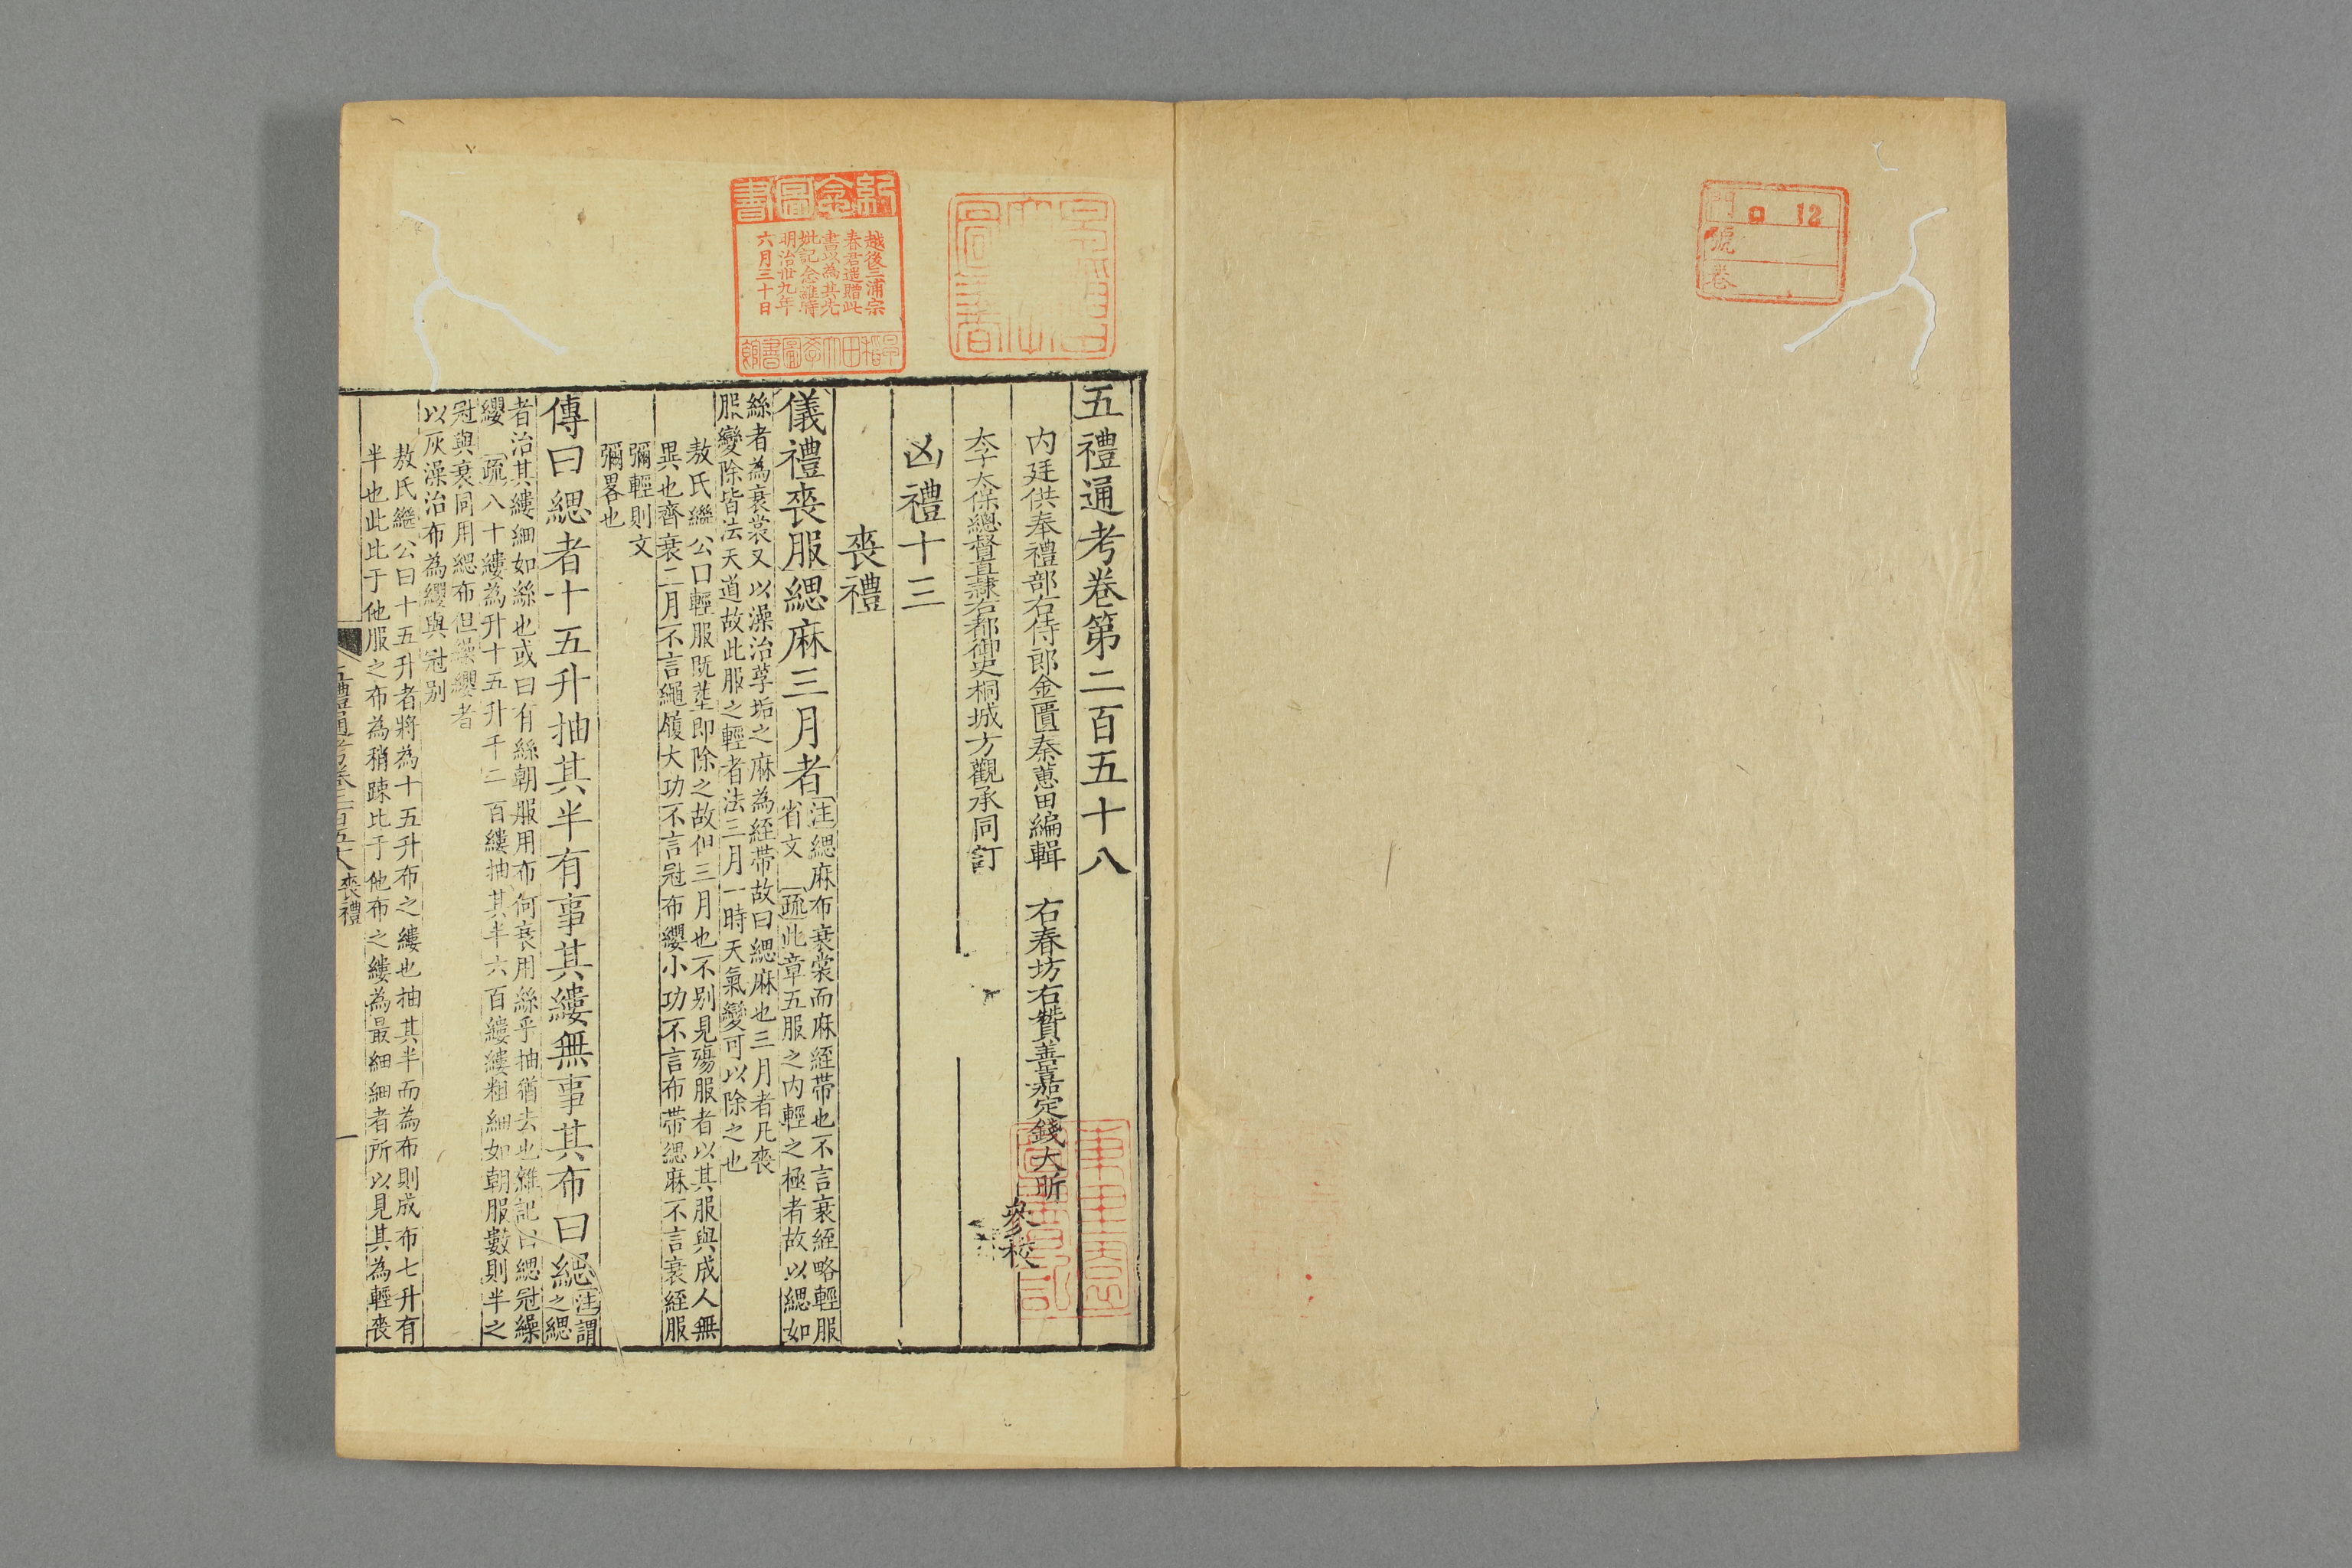 門 ロ 12
號
卷
五禮通考卷第二百五十八
内廷供奉禮部右侍郎金匱秦蕙田編輯 右春坊右贊善嘉定錢大昕
參校
太子太保總督直隷右都御史桐城方觀承同訂
凶禮十三
喪禮
儀禮喪服緦麻三月者
注緦麻布衰裳而麻絰帶也不言衰絰略輕服
省文 疏此章五服之内輕之極者故以緦如
絲者為衰裳又以澡治莩垢之麻為絰帶故曰緦麻也三月者凡喪
服變除皆法天道故此服之輕者法三月一時天氣變可以除之也
敖氏繼公曰輕服既葬即除之故但三月也不别見殤服者以其服與成人無
異也齊衰二月不言繩屨大功不言冠布纓小功不言布帶緦麻不言衰絰服
彌輕則文
彌畧也
傳曰緦者十五升抽其半有事其縷無事其布曰緦
注謂
之緦
者治其縷細如絲也或曰有絲朝服用布何衰用絲乎抽猶去也雜記曰緦冠繰
纓 疏八十縷為升十五升千二百縷抽其半六百縷縷粗細如朝服數則半之
冠與衰同用緦布但繰纓者
以灰澡治布為纓與冠别
敖氏繼公曰十五升者將為十五升布之縷也抽其半而為布則成布七升有
半也此比于他服之布為稍踈比于他布之縷為最細細者所以見其為輕喪
五禮通考卷二百五十八 喪禮
一
紀念圖書
越後三浦宗
春君遥贈此
書以為其先
妣記念維時
明治卅九年
六月三十日
早稻田大學圖書館